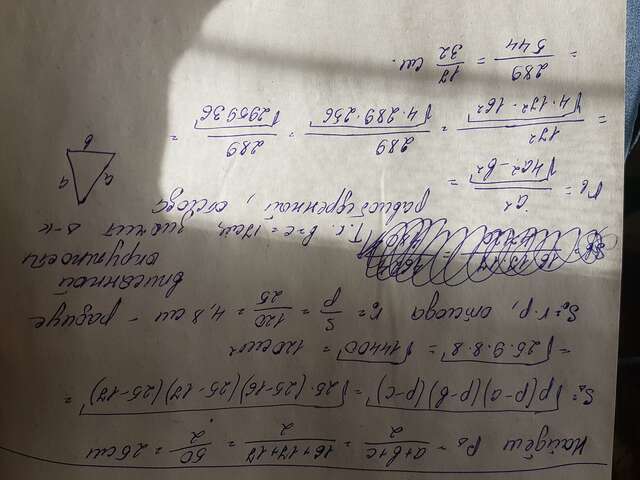 Найдем P△ = a+b+c/2 = 16+17+17/2 = 50/2 = 25 см
S△ = √p(p-a)(p-b)(p-c) = √25·(25-16)(25-17)(25-17) =
= √25·9·8·8 = √14400 = 120 см²
S△ = r·p, отсюда r = S/p = 120/25 = 4,8 см - радиус
вписанной
окружности
Т.к. b=c=17см, значит △-к
равнобедренный, отсюда
r₆ = a²/√4a²-b² =
= 17²/√4·17²-16² = 289/√4·289-256 = 289/√295936 =
= 289/544 = 17/32 см.
b
a
a